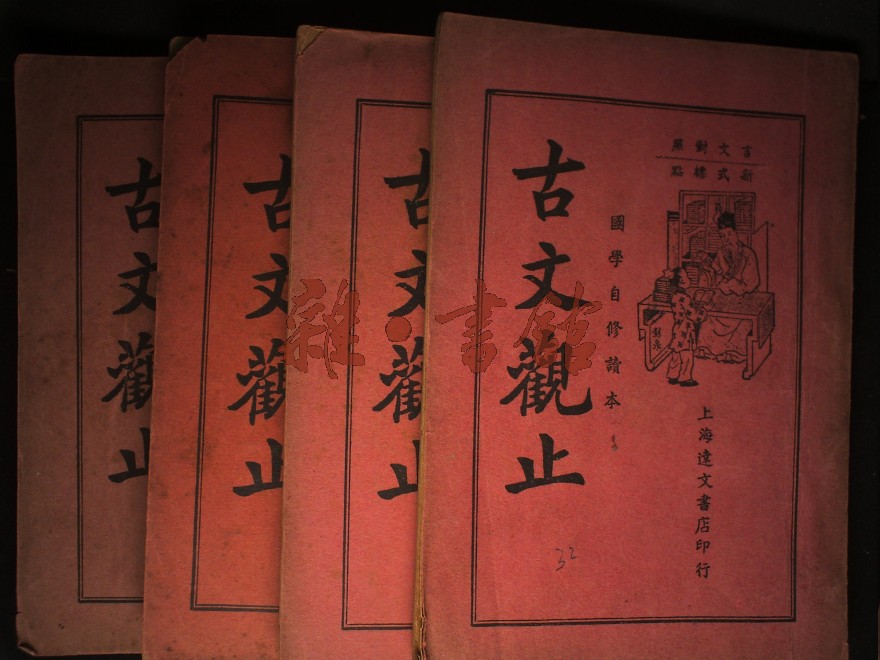 言文對照
新式標點
國學自修讀本
古文觀止
上海達文書店印行
32
古文觀止
古文觀止
古文觀止
雜·書館